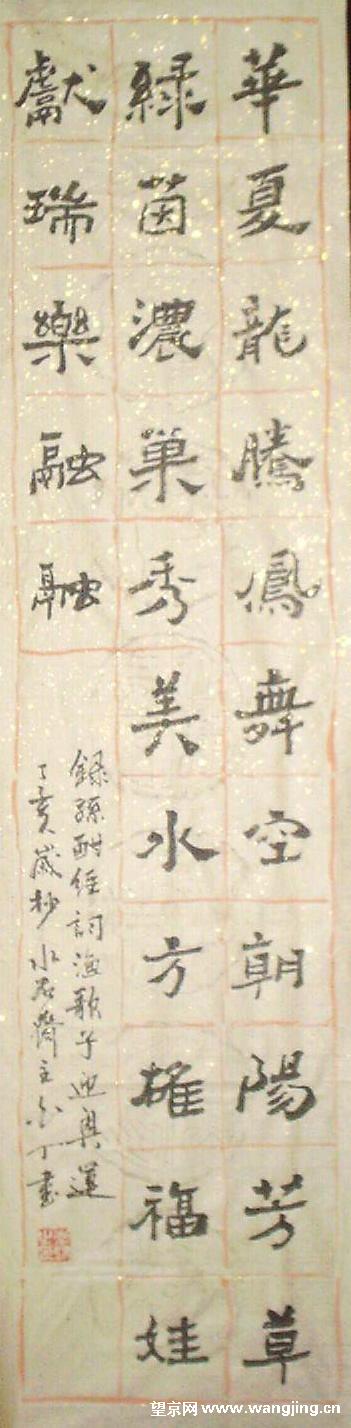 華夏龍騰鳳舞空朝陽芳草
綠茵濃巢秀美水方雄福娃
獻瑞樂融融
錄孫酎經詞漁歌子迎奧運
丁亥歲杪水石齋主白丁書
望京网 www.wangjing.cn